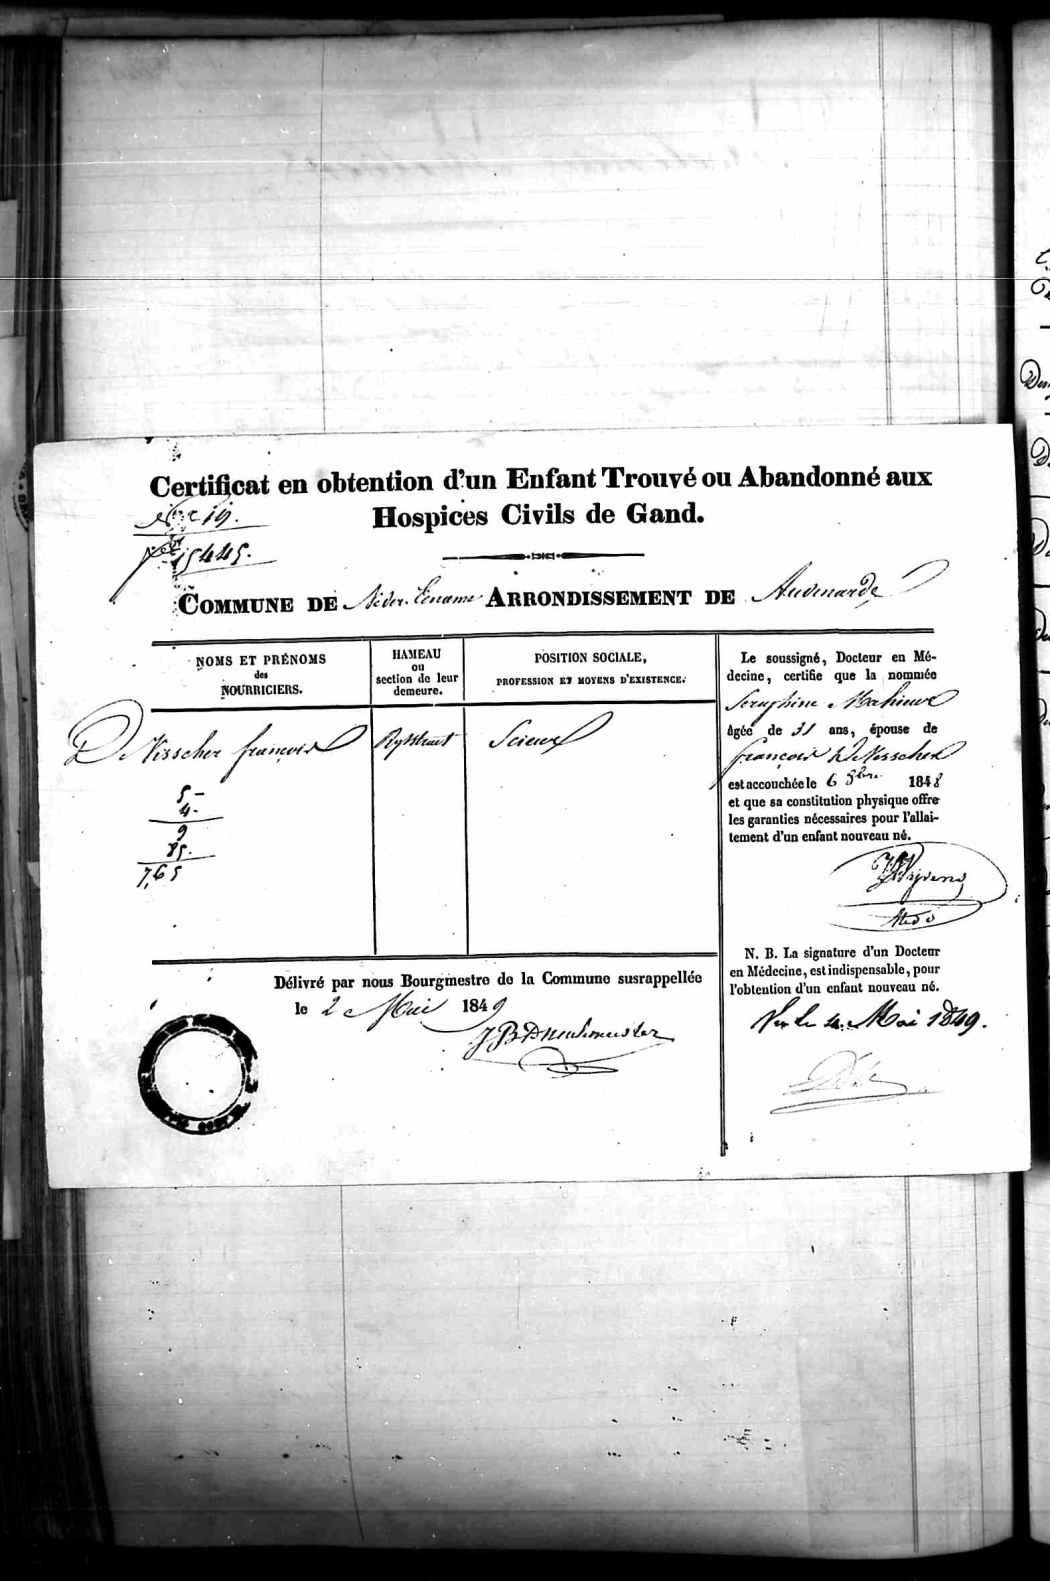 Certificat en obtention d'un Enfant Trouvé ou Abandonné aux
Hospices Civils de Gand.
19.
15445.
COMMUNE DE Neder-Eename ARRONDISSEMENT DE Audenarde
NOMS ET PRÉNOMS
des
NOURRICIERS.
HAMEAU
ou
section de leur
demeure.
POSITION SOCIALE,
PROFESSION ET MOYENS D'EXISTENCE.
De Visscher françois
Rystraat
Scieur
5-
4-
9
85.
7,65
Le soussigné, Docteur en Mé-
decine, certifie que la nommée
Seraphine Mahieu
âgée de 31 ans, épouse de
françois De Visscher
est accouchée le 6 9bre 1848
et que sa constitution physique offre
les garanties nécessaires pour l'allai-
tement d'un enfant nouveau né.
N. B. La signature d'un Docteur
en Médecine, est indispensable, pour
l'obtention d'un enfant nouveau né.
Vu le 4 Mai 1849.
Délivré par nous Bourgmestre de la Commune susrappellée
le 2 Mai 1849